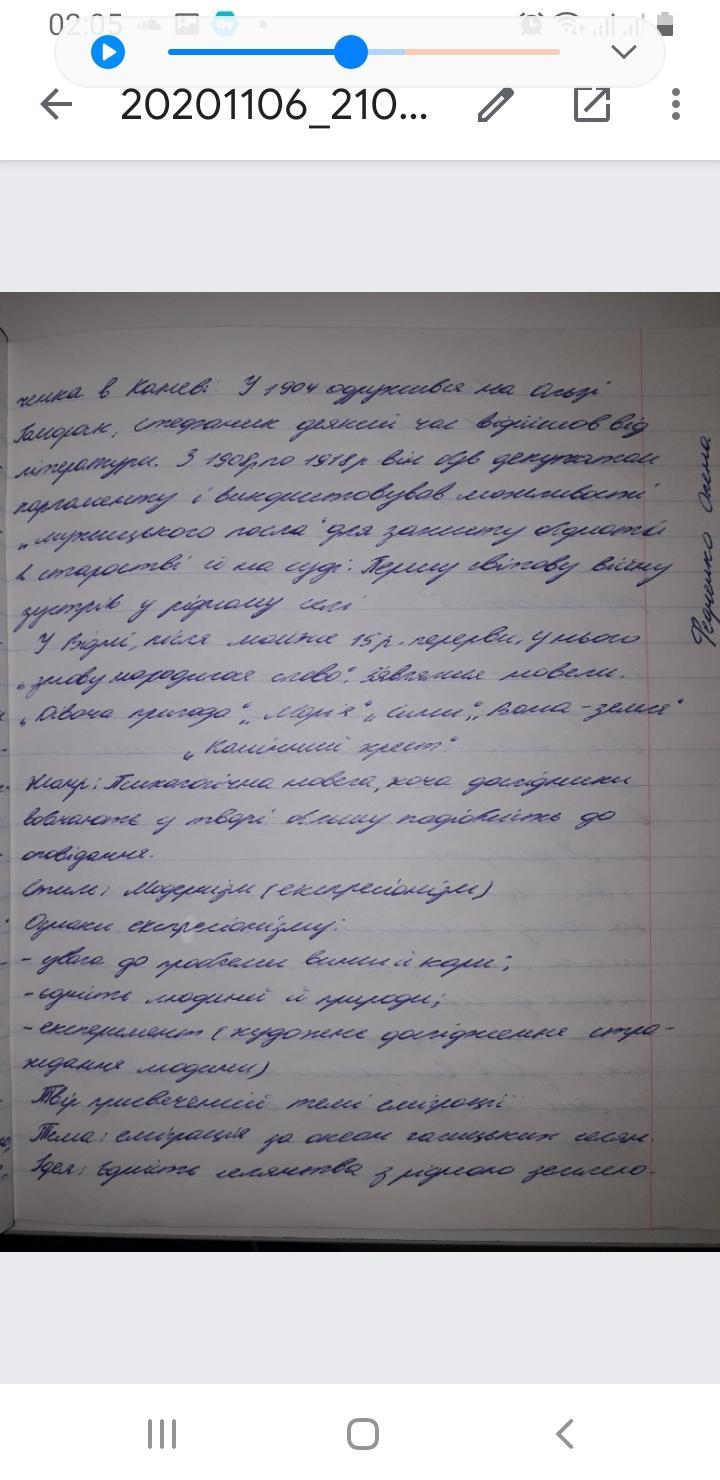 02:05
20201106_210...
ченка в Каневі. У 1904 одружився на Ользі
Гаморак, Стефаник деякий час відійшов від
літератури. З 1908р по 1918р він був депутатом
парламенту і використовував можливості
„мужицького посла" для захисту бідноти
в старостві й на суді. Першу світову війну
зустрів у рідному селі
У Відні, після майже 15 р. перерви, у нього
„знову народилося слово". З'явилися новели:
„Дівоча пригода", „Марія", „Сини", „Вона - земля"
„Камінний хрест"
Жанр: Психологічна новела, хоча дослідники
вбачають у творі більшу подібність до
оповідання.
Стиль: Модернізм (експресіонізм)
Ознаки експресіонізму:
- увага до проблеми вини й кари;
- єдність людини й природи;
- експеримент (художнє дослідження стра-
ждання людини)
Твір присвячений темі еміграції
Тема: еміграція за океан галицьких селян.
Ідея: Єдність селянства з рідною землею.
Федченко Олена